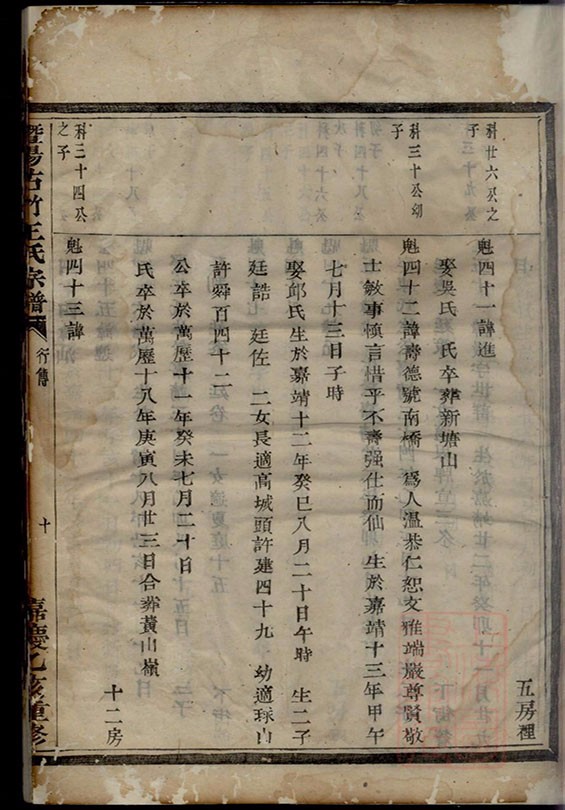 科廿六公之
子
魁四十一諱進
五房裡
娶吳氏 氏卒葬新塘山
科三十公幼
子
魁四十二諱齊德號南橋 爲人溫恭仁恕文雅端嚴尊賢敬
士敏事慎言惜乎不齊强仕而仙 生於嘉靖十三年甲午
七月十三日子時
娶邱氏生於嘉靖十二年癸巳八月二十日午時 生二子
廷誥 廷佐 二女長適高城頭許建四十九 幼適琜山
許舜百四十二
公卒於萬歷十一年癸未七月二十日
氏卒於萬歷十八年庚寅八月廿三日合葬黃山嶺
科三十四公
之子
魁四十三諱
十二房
暨陽古竹王氏宗譜
行傳
十
嘉慶乙亥重修